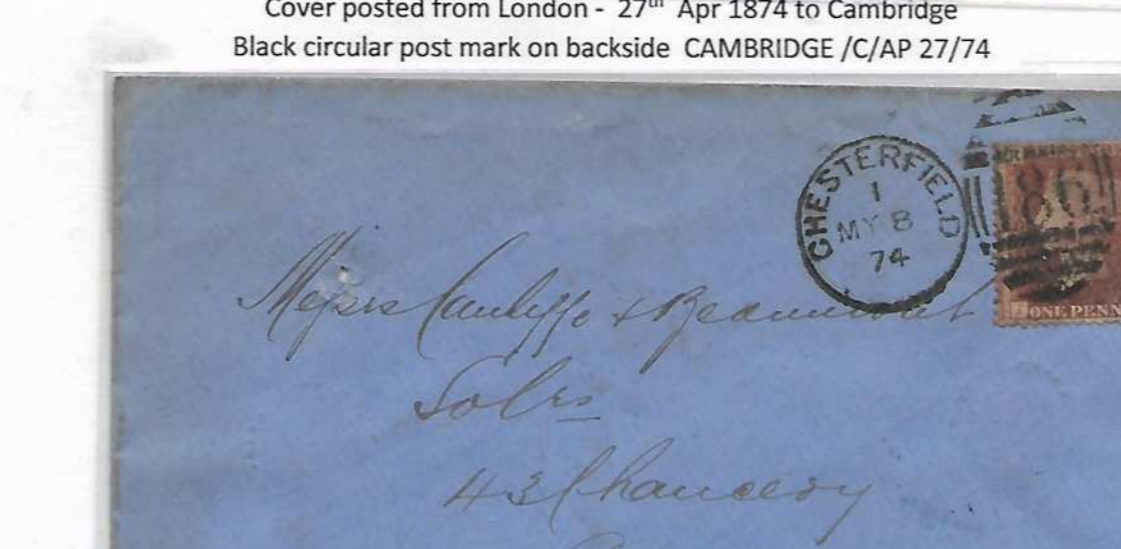 Cover posted from London - 27th Apr 1874 to Cambridge
Black circular post mark on backside CAMBRIDGE /C/AP 27/74
CHESTERFIELD
1
MY 8
74
186
ONE PENN
Messrs Cunliffe & Beaumont
Solrs
43 Chancery